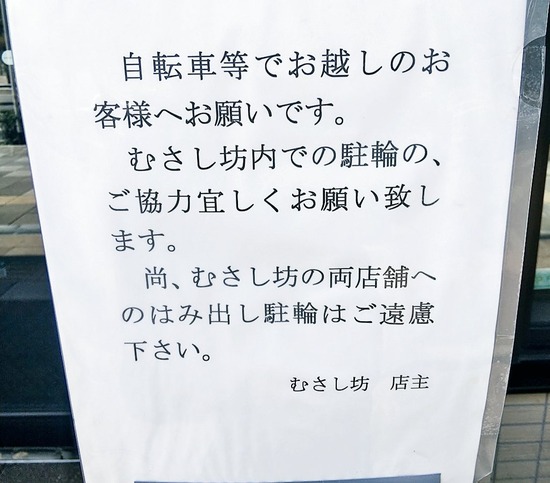 自転車等でお越しのお
客様へお願いです。
むさし坊内での駐輪の、
ご協力宜しくお願い致し
ます。
尚、むさし坊の両店舗へ
のはみ出し駐輪はご遠慮
下さい。
むさし坊　店主